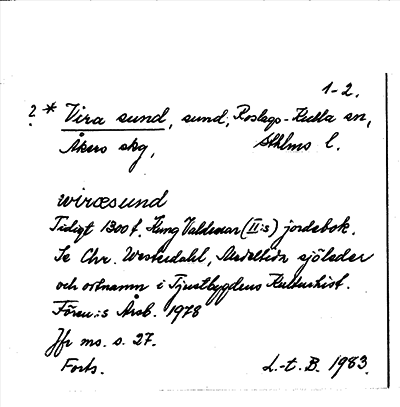 1-2.
? * Vira sund, sund, Roslags-Kulla sn,
Åkers skg, Sthlms l.
wiræsund
Tidigt 1300 t. Kung Valdemar (II:s) jordebok.
Se Chr. Westerdahl, Medeltida sjöleder
och ortnamn i Tjustbygdens Kulturhist.
Fören:s Årsb. 1978
Jfr ms. s. 27.
Forts. L.-t. B. 1983.